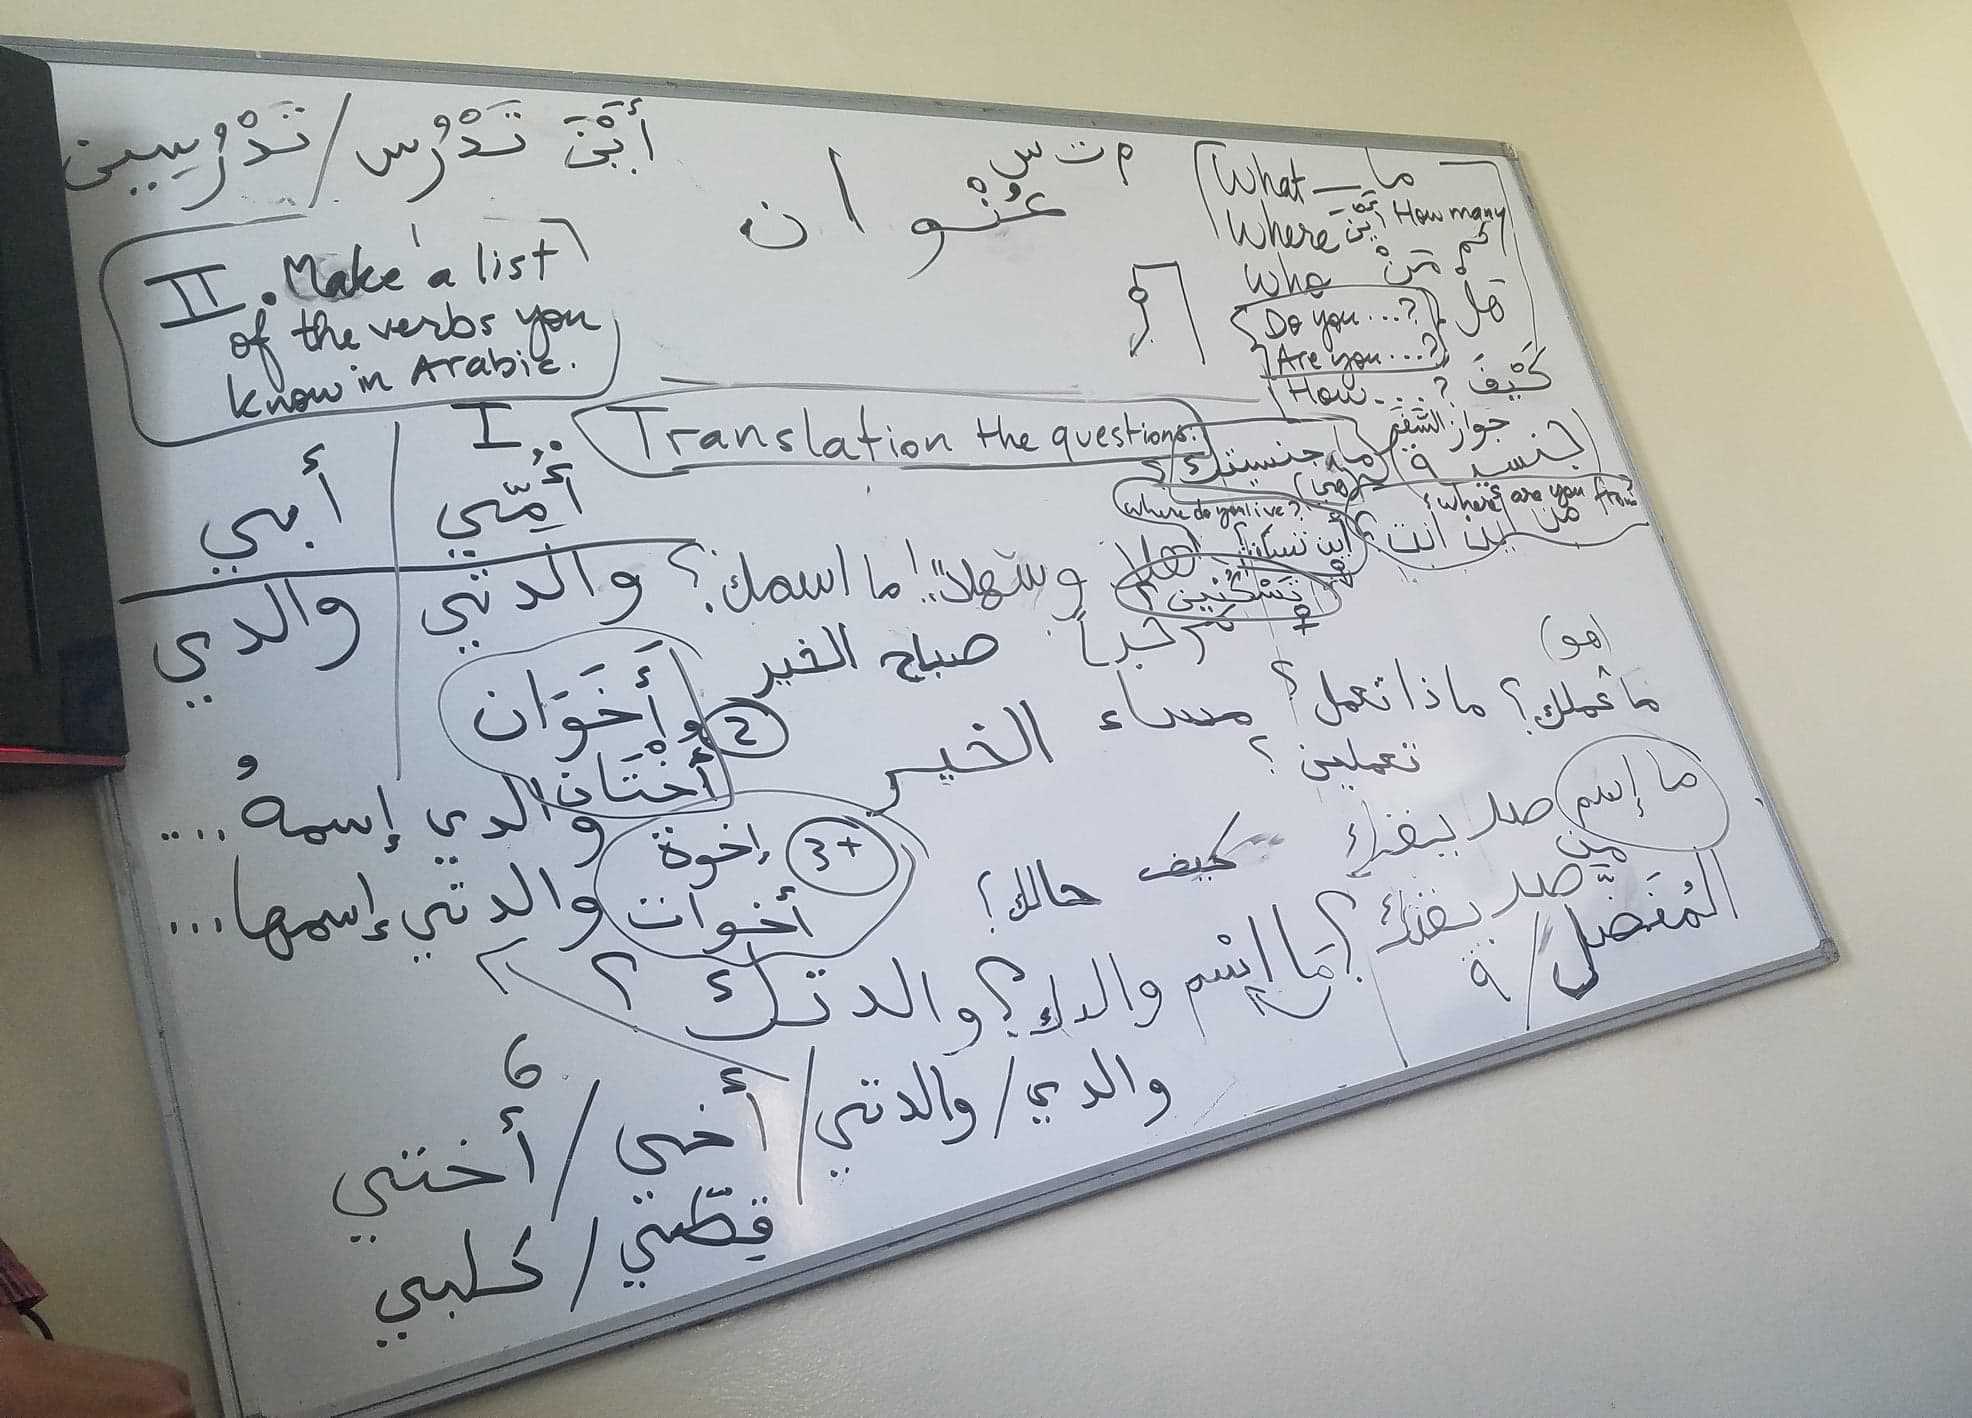 أَيْنَ تَدْرُس / تَدْرُسِين
م ت س
عُنْوان
What — ما
Where أَيْنَ How many كم
Who مَنْ
Do you...? هَلْ
Are you...?
How...? كَيْفَ
II. Make a list
of the verbs you
know in Arabic.
I. Translation the questions:
جواز السَّفَر
جنسية
ما جنسيتك؟
(هي)
where are you from?
من أين أنت؟
where do you live?
أين تسكن؟
تَسْكُنين؟
أُمِّي
أبي
والدتي
والدي
أهلا وسهلاً! ما اسمك؟
مرحباً
صباح الخير
مساء الخير
(هو)
ما عملك؟ ماذا تعمل؟
تعملين؟
2
أَخَوَان
وأُخْتَان
3+
إخوة
أخوات
والدي إسمهُ ....
والدتي إسمها ...
كيف حالك؟
ما إسم صديقك
من صديقتك؟
المُفَضَّل / ة
ما اسْم والدك؟ والدتك؟
والدي / والدتي / أخي / أختي
قِطّتي / كلبي